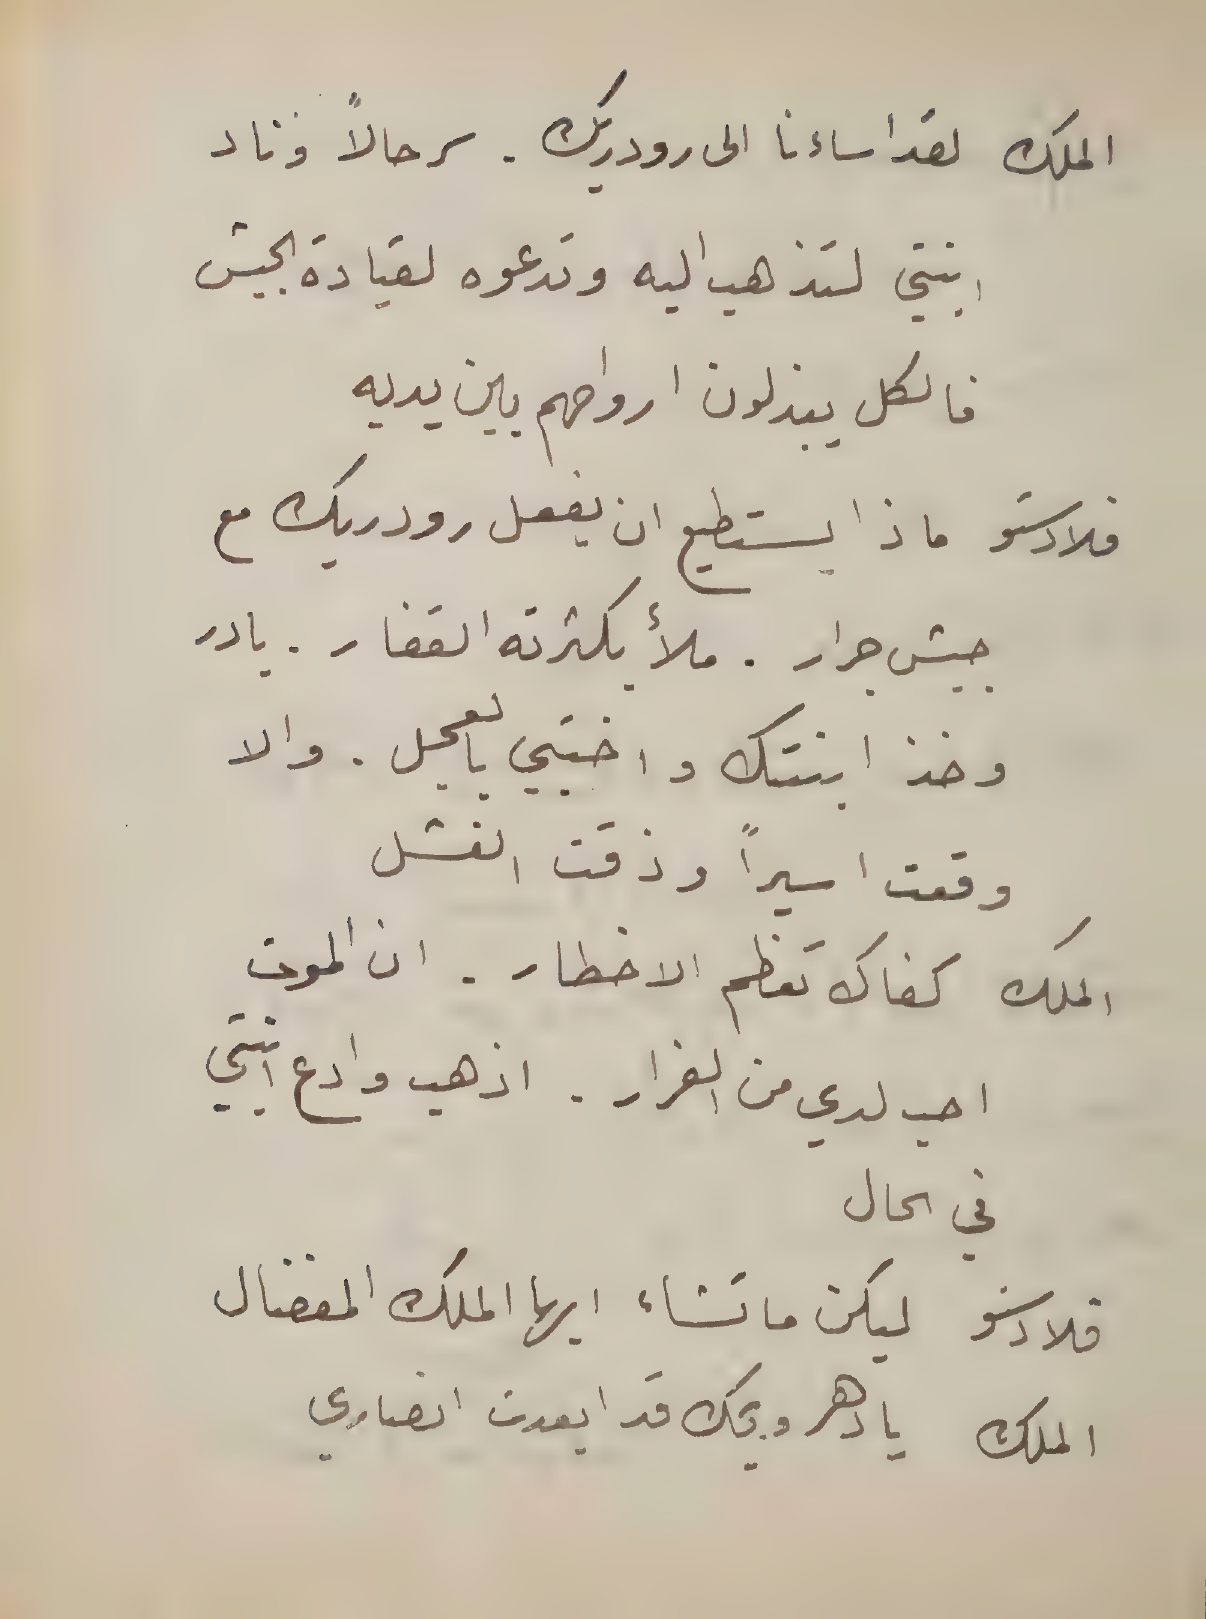 الملك لقد اساءنا الى رودريك . سر حالاً وناد
ابنتي لتذهب اليه وتدعوه لقيادة الجيش
فالكل يبذلون ارواحهم بين يديه
فلادستو ماذا يستطيع ان يفعل رودريك مع
جيش جرار . ملأ بكثرته القفار . بادر
وخذ ابنتك واختبي بالعجل . والا
وقعت اسيراً وذقت الفشل
الملك كفاك تعظم الاخطار . ان الموت
احب لدي من الفرار . اذهب وادع ابنتي
في الحال
فلادستو ليكن ماتشاء ايها الملك المفضال
الملك يا دهر ويحك قد ابعدت انصاري